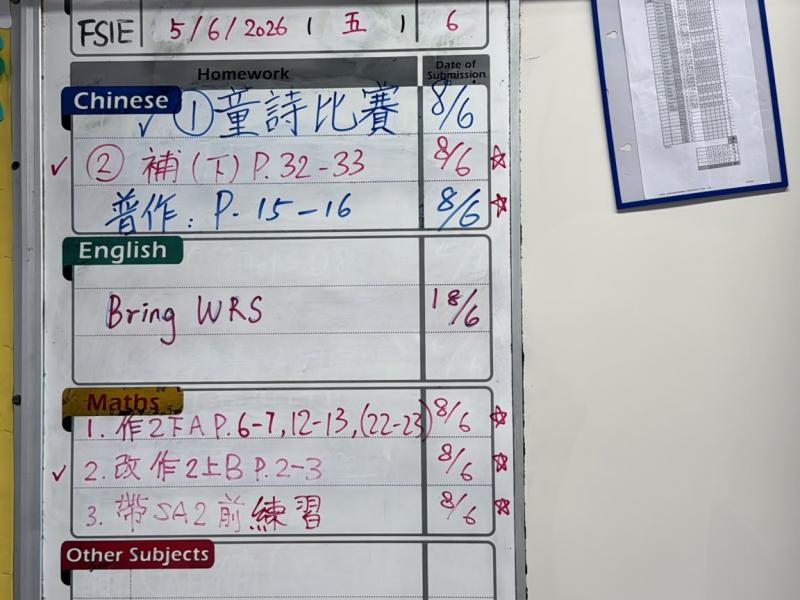 FSIE 5/6/2026 ( 五 ) 6
Homework Date of Submission
Chinese ✓ ①童詩比賽 8/6
✓ ② 補(下) P.32-33 8/6 ☆
普作: P. 15-16 8/6 ☆
English
Bring WRS 18/6
Maths
1. 作2下A P.6-7, 12-13, (22-23) 8/6 ☆
✓ 2. 改作2上B P.2-3 8/6 ☆
3. 帶SA2前練習 8/6 ☆
Other Subjects